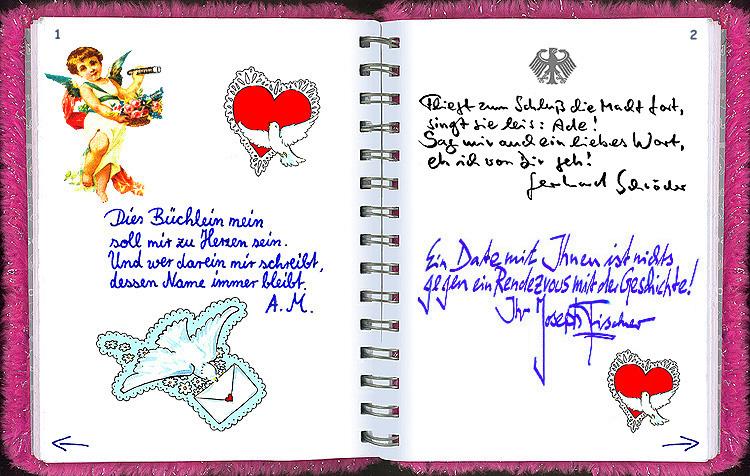 1
Dies Büchlein mein
soll mir zu Herzen sein.
Und wer darein mir schreibt,
dessen Name immer bleibt.
A. M.
2
Fliegt zum Schluß die Macht fort,
singt sie leis: Ade!
Sag mir auch ein liebes Wort,
eh ich von Dir geh!
Gerhard Schröder
Ein Date mit Ihnen ist nichts
gegen ein Rendezvous mit der Geschichte!
Ihr Joseph Fischer